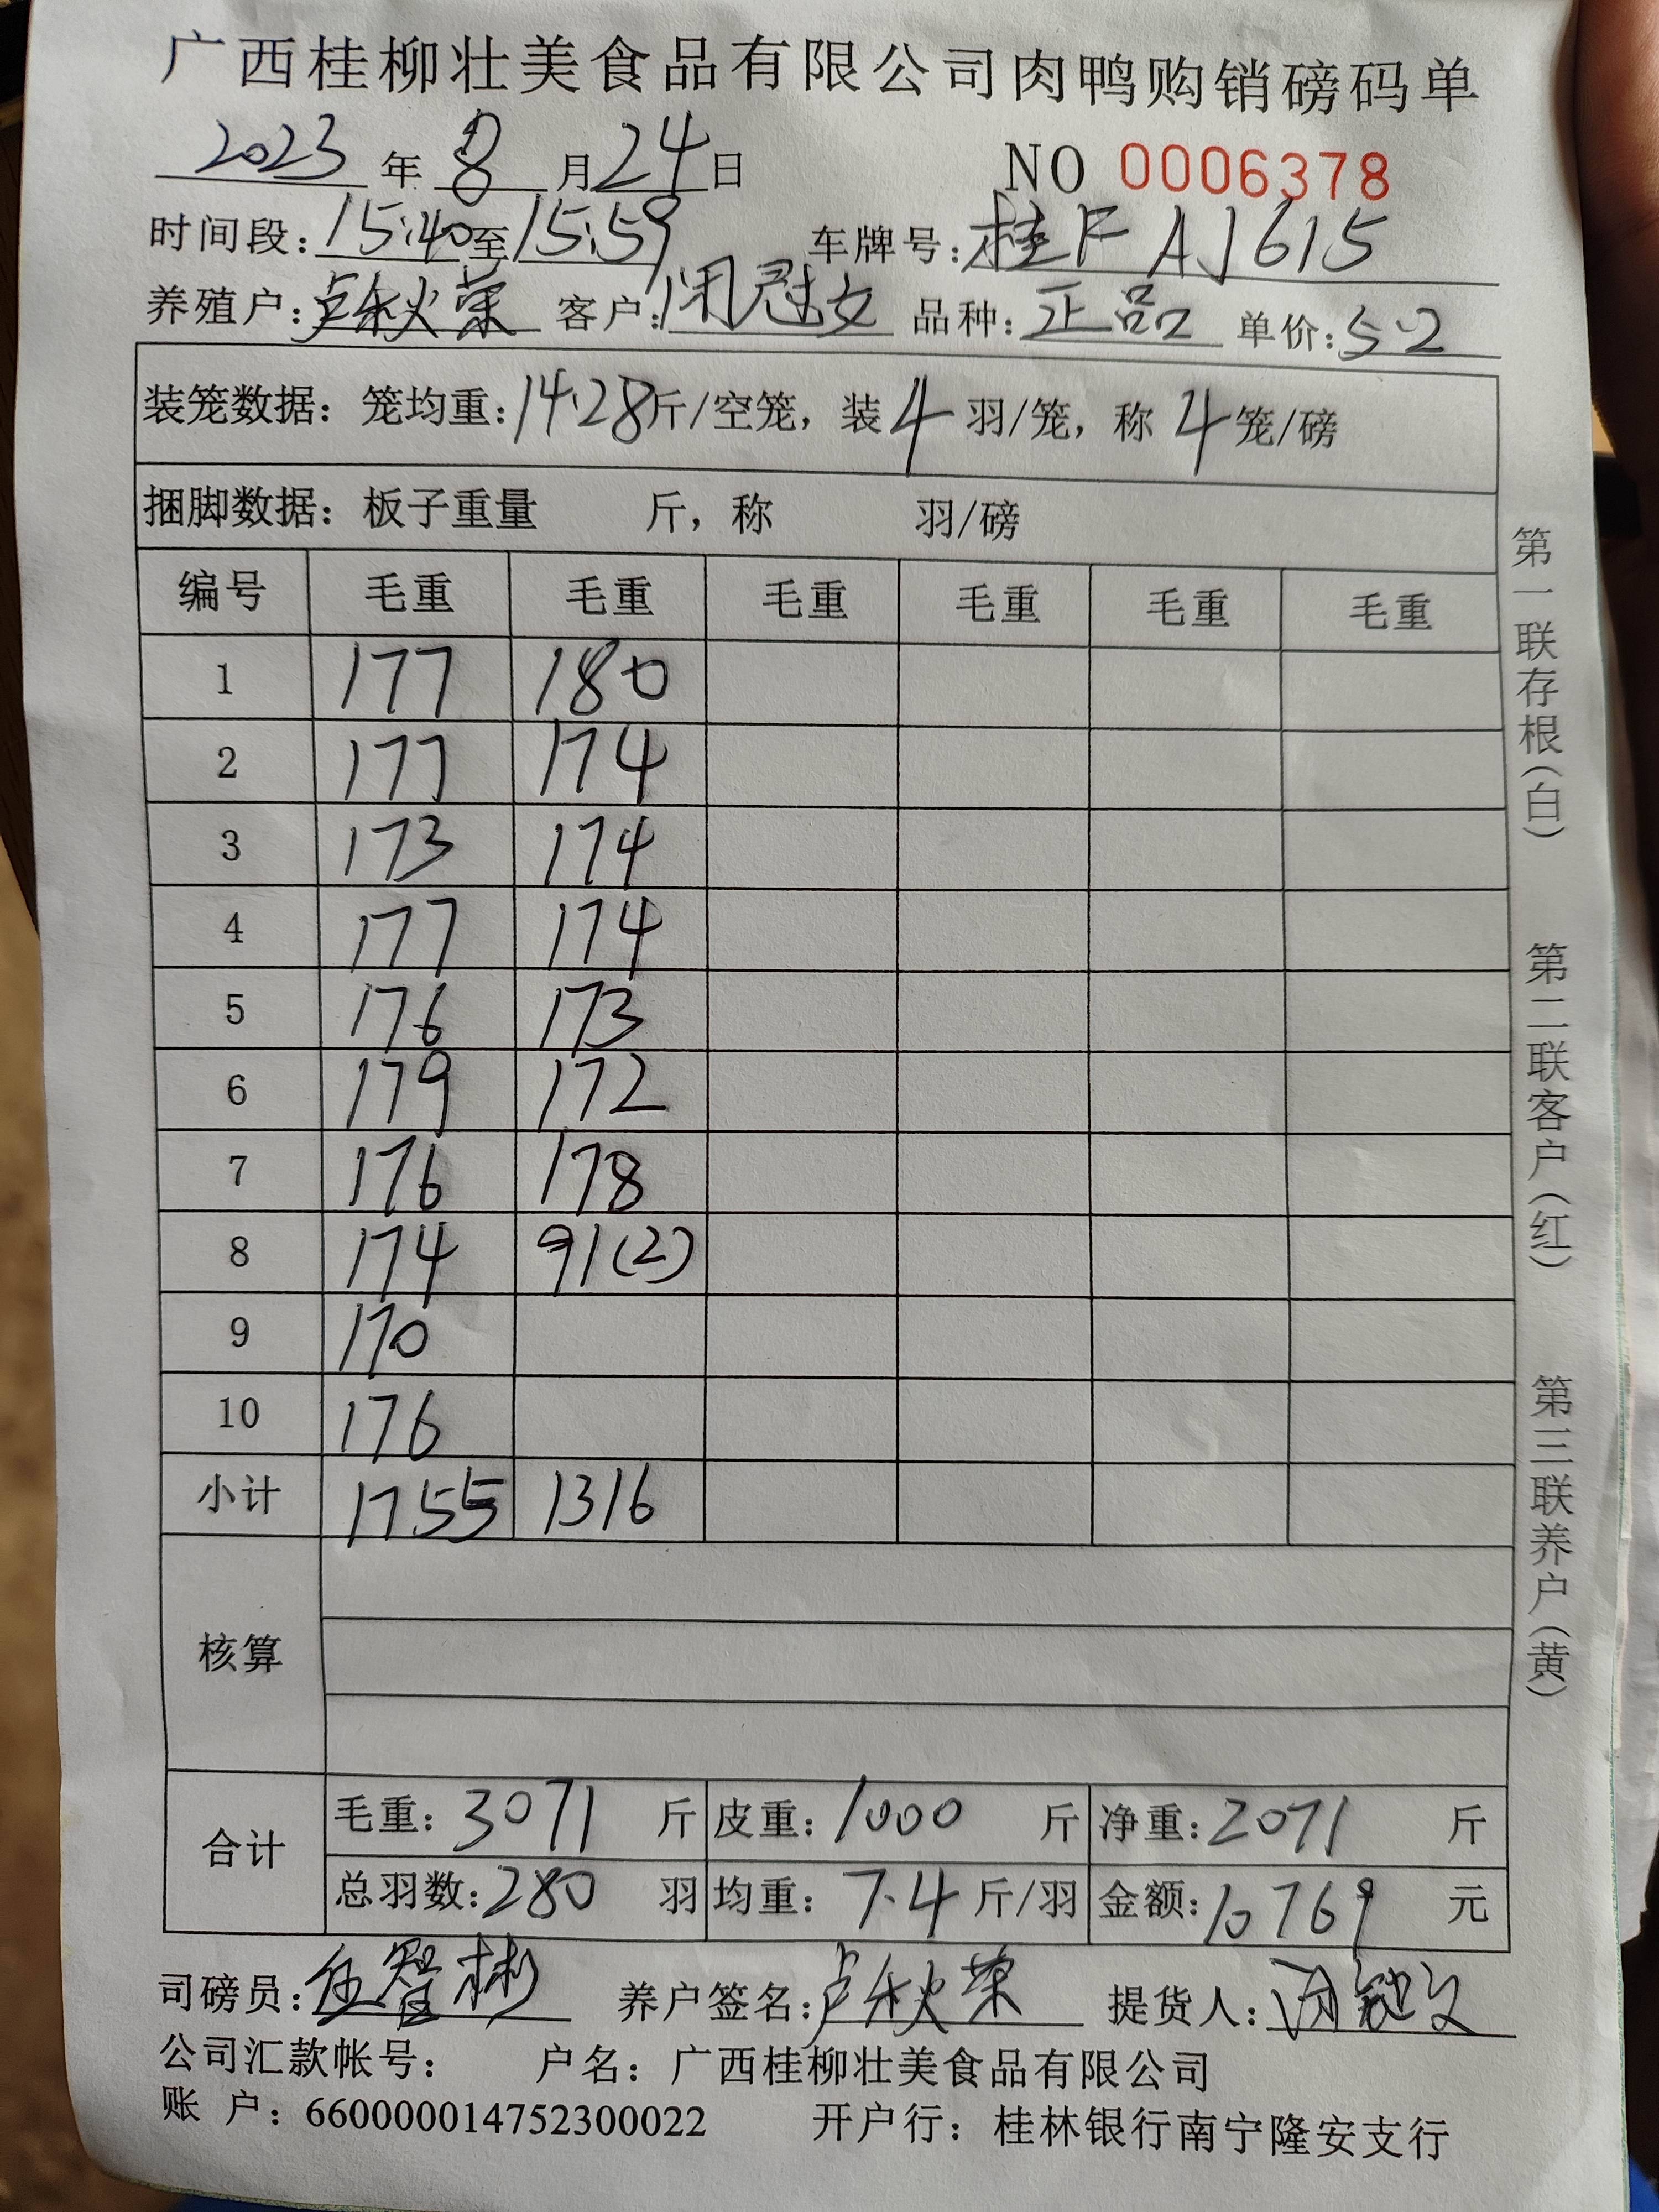 广西桂柳壮美食品有限公司肉鸭购销磅码单
2023年 8月24日 NO 0006378
时间段:15:40至15:59 车牌号:桂F AJ615
养殖户:卢秋荣 客户: 品种:正品 单价:5.2
装笼数据:笼均重:14.28斤/空笼,装4羽/笼,称4笼/磅
捆脚数据:板子重量 斤,称 羽/磅
编号 毛重 毛重 毛重 毛重 毛重 毛重
1 177 180
2 177 174
3 173 174
4 177 174
5 176 173
6 179 172
7 176 178
8 174 91(2)
9 170
10 176
小计 1755 1316
核算
合计 毛重:3071 斤 皮重:1000 斤 净重:2071 斤
总羽数:280 羽 均重:7.4 斤/羽 金额:10769 元
司磅员:伍智彬 养户签名:卢秋荣 提货人:
公司汇款帐号: 户名:广西桂柳壮美食品有限公司
账 户:660000014752300022 开户行:桂林银行南宁隆安支行
第一联存根(白) 第二联客户(红) 第三联养户(黄)